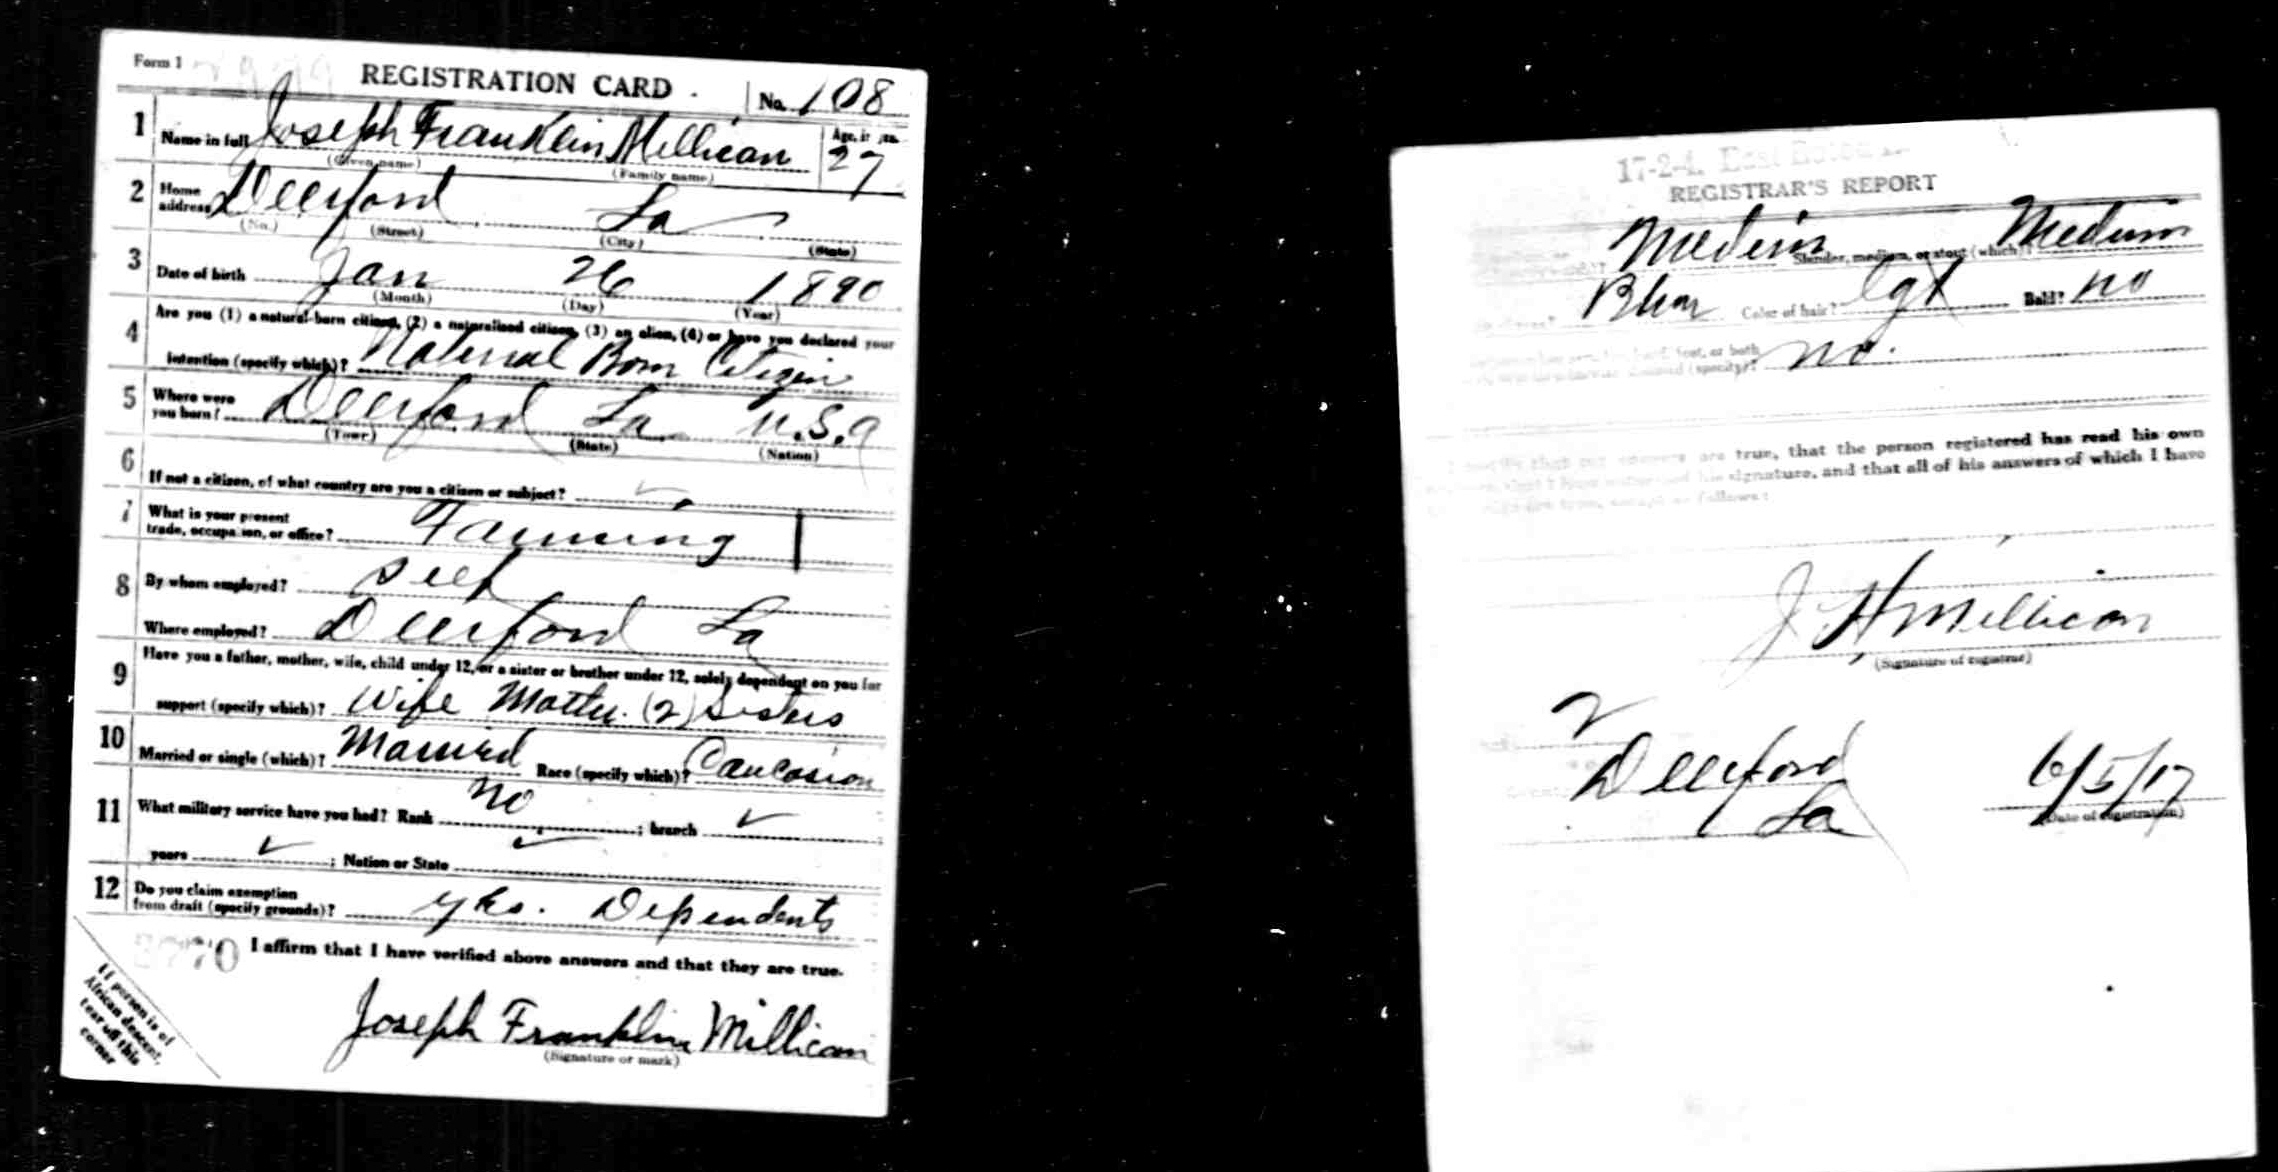 Form 1
REGISTRATION CARD
No. 108
1 Name in full Joseph Franklin Millican
Age, in yrs. 27
(Given name) (Family name)
2 Home address Deerford La
(No.) (Street) (City) (State)
3 Date of birth Jan 26 1890
(Month) (Day) (Year)
4 Are you (1) a natural-born citizen, (2) a naturalized citizen, (3) an alien, (4) or have you declared your
intention (specify which)? Natural Born Citizen
5 Where were you born? Deerford La U.S.A
(Town) (State) (Nation)
6 If not a citizen, of what country are you a citizen or subject? ✓
7 What is your present
trade, occupation, or office? Farming
8 By whom employed? Self
Where employed? Deerford La
9 Have you a father, mother, wife, child under 12, or a sister or brother under 12, solely dependent on you for
support (specify which)? Wife Mother. (2) Sisters
10 Married or single (which)? Married Race (specify which)? Caucasion
11 What military service have you had? Rank no ; branch ✓
years ✓ ; Nation or State ✓
12 Do you claim exemption
from draft (specify grounds)? yes. Dependents
I affirm that I have verified above answers and that they are true.
Joseph Franklin Millican
(Signature or mark)
If person is of
African descent,
tear off this
corner
17-2-4. East
REGISTRAR'S REPORT
Medium Slender, medium, or stout (which)? Medium
Color of hair? Lgt Bald? no
foot, or both
(specify)? no.
are true, that the person registered has read his own
his signature, and that all of his answers of which I have
are true, except as follows:
J H Millican
(Signature of registrar)
2
Deerford
La
6/5/17
(Date of registration)